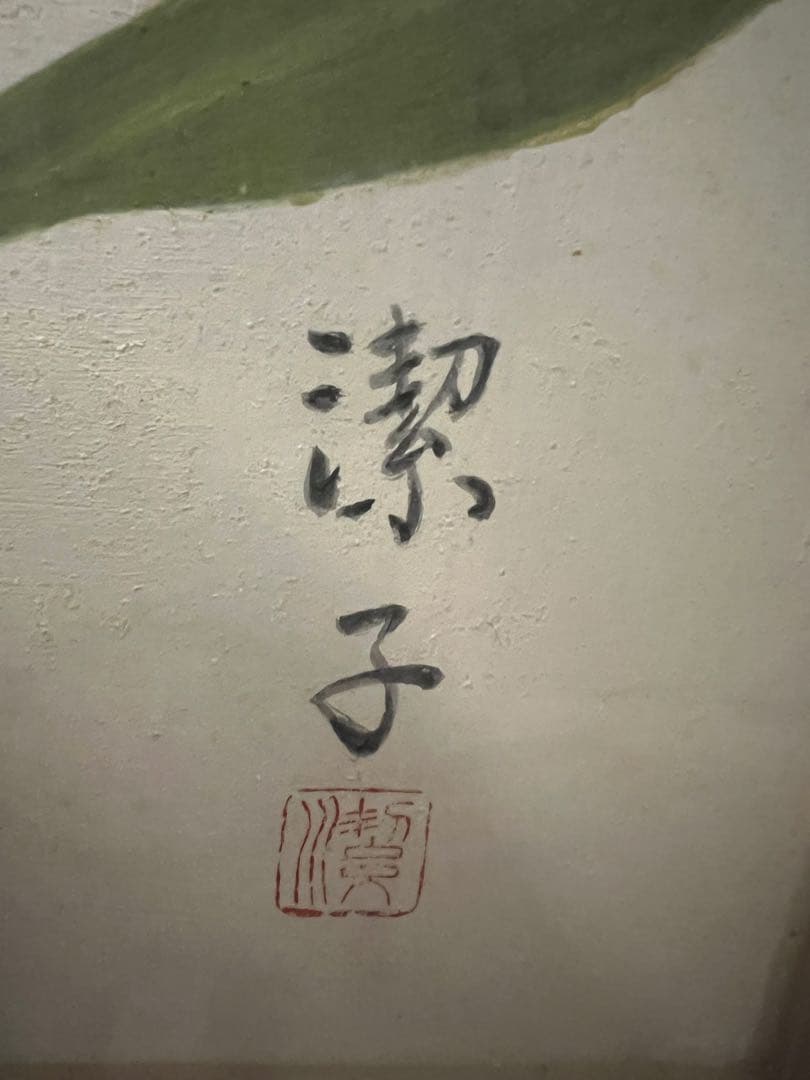 潔子
潔